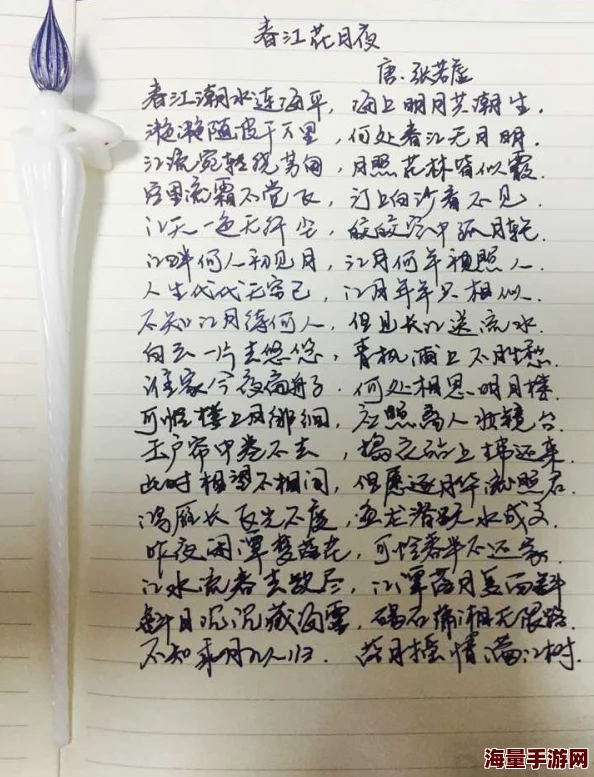 春江花月夜
唐·张若虚
春江潮水连海平，海上明月共潮生.
滟滟随波千万里，何处春江无月明.
江流宛转绕芳甸，月照花林皆似霰.
空里流霜不觉飞，汀上白沙看不见.
江天一色无纤尘，皎皎空中孤月轮.
江畔何人初见月，江月何年初照人.
人生代代无穷已，江月年年只相似.
不知江月待何人，但见长江送流水.
白云一片去悠悠，青枫浦上不胜愁.
谁家今夜扁舟子.何处相思明月楼.
可怜楼上月徘徊，应照离人妆镜台.
玉户帘中卷不去，捣衣砧上拂还来.
此时相望不相闻，但愿逐月华流照君.
鸿雁长飞光不度，鱼龙潜跃水成文.
昨夜闲潭梦落花，可怜春半不还家.
江水流春去欲尽，江潭落月复西斜
斜月沉沉藏海雾，碣石潇湘无限路.
不知乘月几人归.落月摇情满江树.
海量手游网